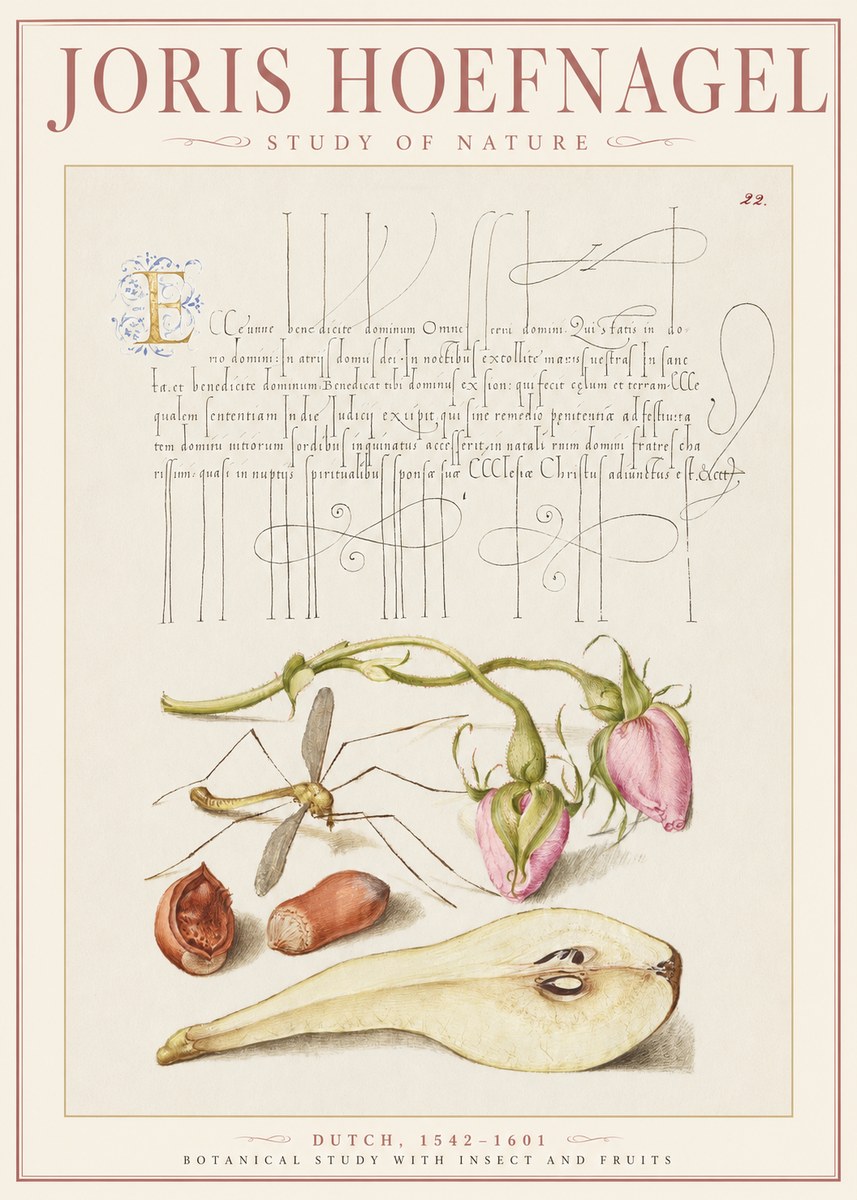 JORIS HOEFNAGEL
STUDY OF NATURE
22.
ECCe nunc benedicite dominum Omnes servi domini. Qui statis in do-
mo domini: In atrijs domus dei. In noctibus extollite manus vestras In sanc
ta. et benedicite dominum. Benedicat tibi dominus ex sion: qui fecit cęlum et terram. CCCe
qualem sententiam In die Iudicij excipit, qui sine remedio pęnitentiæ ad
tem domini vitiorum sordibus inquinatus accesserit, in natali domini fratres cha
rissimi: quasi in nuptijs spiritualibus sponsæ suæ CCCLesiæ Christus adiunctus est.
DUTCH, 1542–1601
BOTANICAL STUDY WITH INSECT AND FRUITS